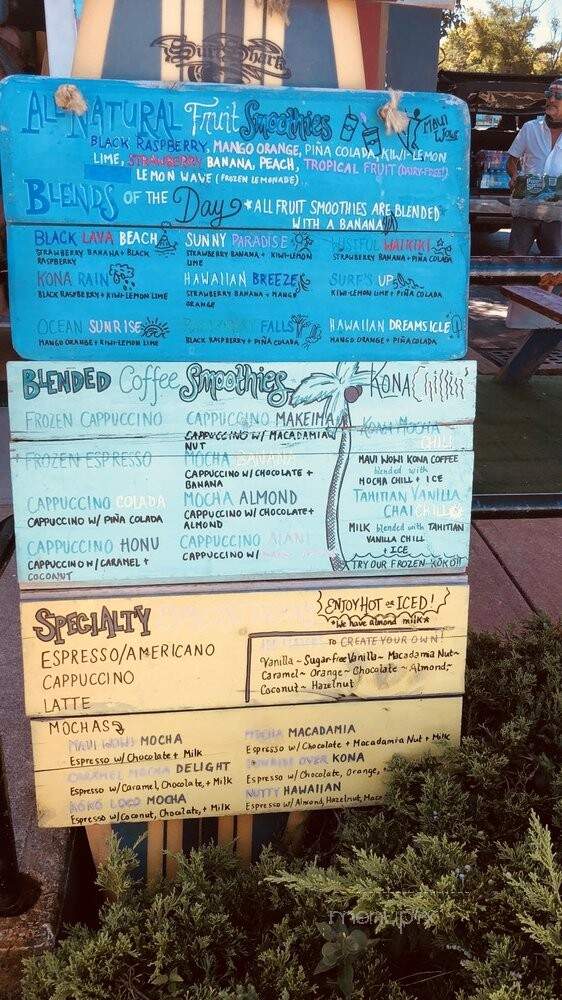 Surf Shark
All NATURAL Fruit Smoothies
MAUI WOWI
BLACK RASPBERRY, MANGO ORANGE, PIÑA COLADA, KIWI-LEMON
LIME, STRAWBERRY BANANA, PEACH, TROPICAL FRUIT (DAIRY-FREE!)
LEMON WAVE (FROZEN LEMONADE)
BLENDS OF THE Day *ALL FRUIT SMOOTHIES ARE BLENDED
WITH A BANANA
BLACK LAVA BEACH
STRAWBERRY BANANA + BLACK
RASPBERRY
SUNNY PARADISE
STRAWBERRY BANANA + KIWI-LEMON
LIME
LUSTFUL WAIKIKI
STRAWBERRY BANANA + PIÑA COLADA
KONA RAIN
BLACK RASPBERRY + KIWI-LEMON LIME
HAWAIIAN BREEZE
STRAWBERRY BANANA + MANGO
ORANGE
SURF'S UP
KIWI-LEMON LIME + PIÑA COLADA
OCEAN SUNRISE
MANGO ORANGE + KIWI-LEMON LIME
FALLS
BLACK RASPBERRY + PIÑA COLADA
HAWAIIAN DREAMSICLE
MANGO ORANGE + PIÑA COLADA
BLENDED Coffee Smoothies
KONA Chillin'
FROZEN CAPPUCCINO
FROZEN ESPRESSO
CAPPUCCINO COLADA
CAPPUCCINO W/ PIÑA COLADA
CAPPUCCINO HONU
CAPPUCCINO W/ CARAMEL +
COCONUT
CAPPUCCINO MAKEIMA
CAPPUCCINO W/ MACADAMIA
NUT
MOCHA BANANA
CAPPUCCINO W/ CHOCOLATE +
BANANA
MOCHA ALMOND
CAPPUCCINO W/ CHOCOLATE +
ALMOND
CAPPUCCINO
CAPPUCCINO W/
KOAH MOCHA
CHILL
MAUI WOWI KONA COFFEE
blended with
MOCHA CHILL + ICE
TAHITIAN VANILLA
CHAI CHILL
MILK blended with TAHITIAN
VANILLA CHILL
+ ICE
TRY OUR FROZEN KOKO!!
SPECIALTY
ENJOY HOT or ICED!
*We have almond milk*
ESPRESSO/AMERICANO
CAPPUCCINO
LATTE
TO CREATE YOUR OWN!
Vanilla ~ Sugar-free Vanilla ~ Macadamia Nut ~
Caramel ~ Orange ~ Chocolate ~ Almond ~
Coconut ~ Hazelnut
MOCHAS
MAUI WOWI MOCHA
Espresso w/ Chocolate + Milk
CARAMEL MOCHA DELIGHT
Espresso w/ Caramel, Chocolate, + Milk
KOKO LOCO MOCHA
Espresso w/ Coconut, Chocolate, + Milk
MOCHA MACADAMIA
Espresso w/ Chocolate + Macadamia Nut + Milk
SUNRISE OVER KONA
Espresso w/ Chocolate, Orange, +
NUTTY HAWAIIAN
Espresso w/ Almond, Hazelnut, Maca
menupix